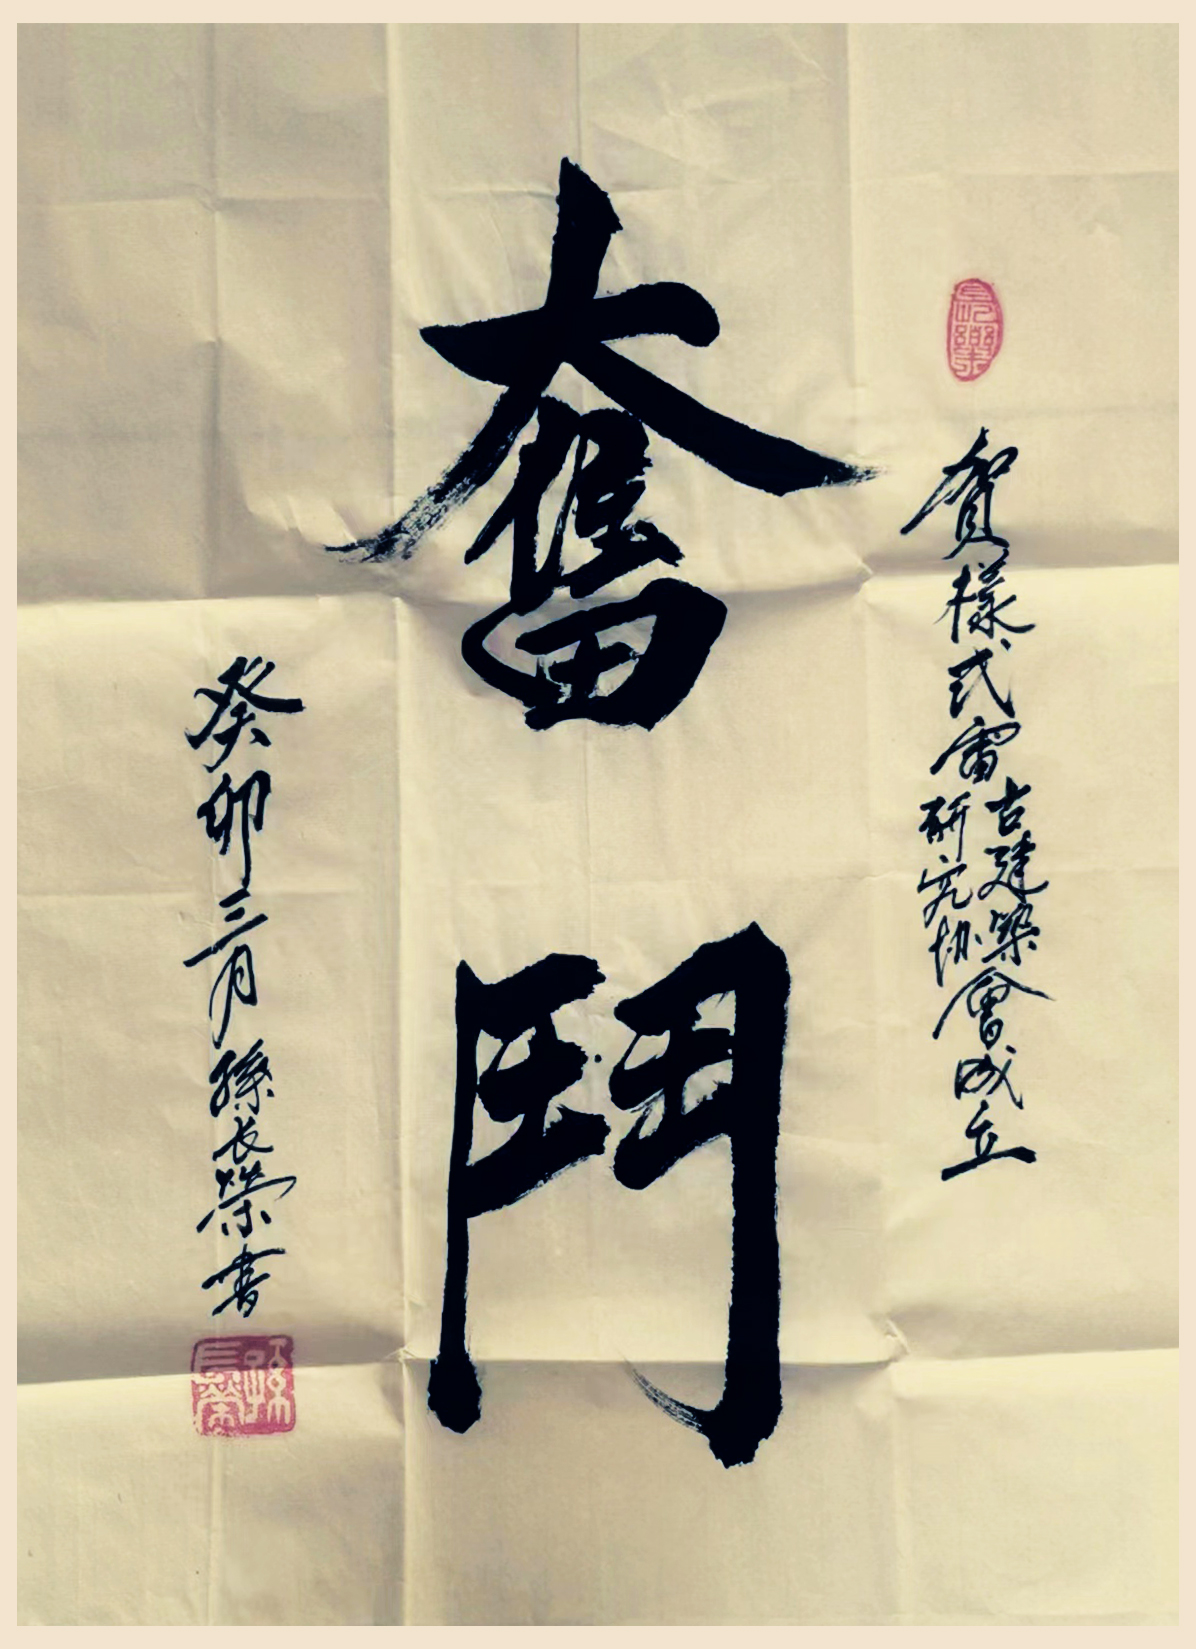 賀樣式雷古建築研究協會成立
奮鬥
癸卯三月孫長榮書
孫長榮